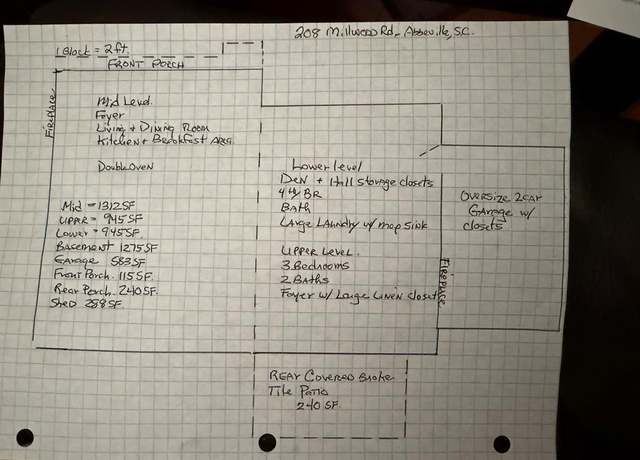 208 Millwood Rd, Abbeville, S.C.
1 Block = 2 ft.
FRONT PORCH
FIREPLACE
Mid Level
Foyer
Living + Dining Room
Kitchen + Breakfast Area
Double Oven
Mid = 1312 SF
UPPER = 945 SF
Lower = 945 SF
Basement 1275 SF
Garage 583 SF
Front Porch 115 SF.
Rear Porch 240 SF.
Shed 288 SF.
Lower level
Den + Hall storage closets
4th BR
Bath
Large Laundry w/ mop sink
Upper Level
3 Bedrooms
2 Baths
Foyer w/ Large Linen closet
FIREPLACE
Oversize 2 car
Garage w/
closets
REAR Covered Broke
Tile Patio
240 SF.